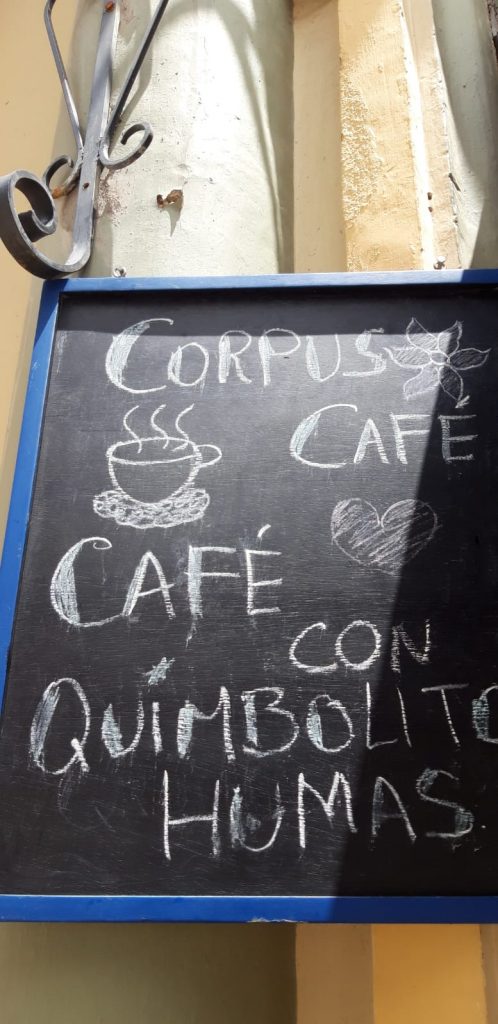 CORPUS
CAFÉ
CAFÉ
CON
QUIMBOLITO
HUMAS